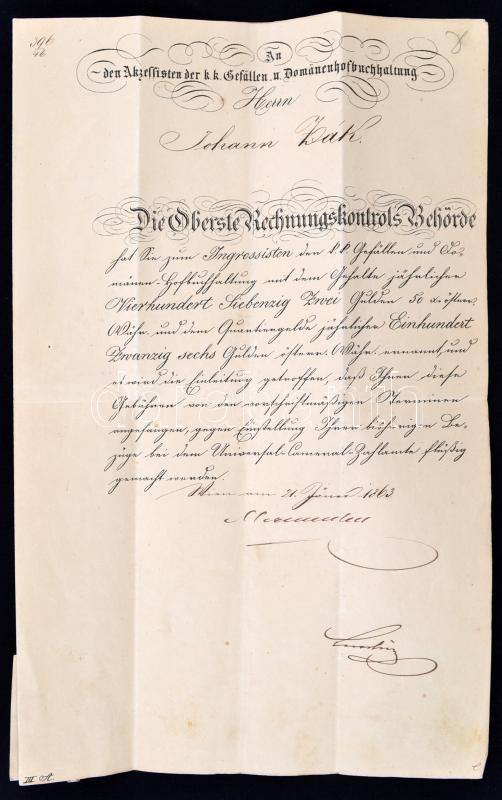 396
46
An
den Akzessisten der k.k. Gefällen u. Domänenhofbuchhaltung
Herrn
Johann Žák.
Die Oberste Rechnungskontrols Behörde
hat Sie zum Ingrossisten der k.k. Gefällen und Do-
mänen-Hofbuchhaltung mit dem Gehalte jährlicher
Vierhundert Siebenzig Zwei Gulden 50 x österr.
Währ. und dem Quartiergelde jährlicher Einhundert
Zwanzig sechs Gulden österr. Währ. ernannt, und
es wird die Einleitung getroffen, daß Ihnen diese
Gebühren von den vorschriftmäßigen Terminen
angefangen, gegen Einstellung Ihrer bisherigen Be-
züge bei dem Universal-Cameral-Zahlamte flüßig
gemacht werden.
Wien am 21. Jäner 1863
III. A.